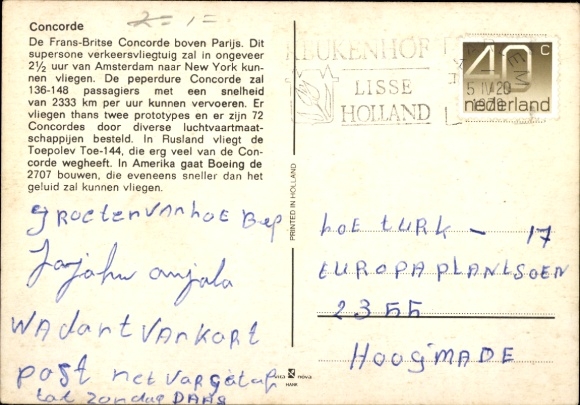 Concorde
De Frans-Britse Concorde boven Parijs. Dit
supersone verkeersvliegtuig zal in ongeveer
2½ uur van Amsterdam naar New York kun-
nen vliegen. De peperdure Concorde zal
136-148 passagiers met een snelheid
van 2333 km per uur kunnen vervoeren. Er
vliegen thans twee prototypes en er zijn 72
Concordes door diverse luchtvaartmaat-
schappijen besteld. In Rusland vliegt de
Toepolev Toe-144, die erg veel van de Con-
corde wegheeft. In Amerika gaat Boeing de
2707 bouwen, die eveneens sneller dan het
geluid zal kunnen vliegen.
2=1=
KEUKENHOF
LISSE
HOLLAND
40 c
nederland
5 IV 20
1979
PRINTED IN HOLLAND
groeten van hoe Bep
Jajahn anjala
wadant van kort
post net
tot zondag DAAG
hoe turk - 17
EUROPAPLANTSOEN
2355
HOOgMADE
HANS